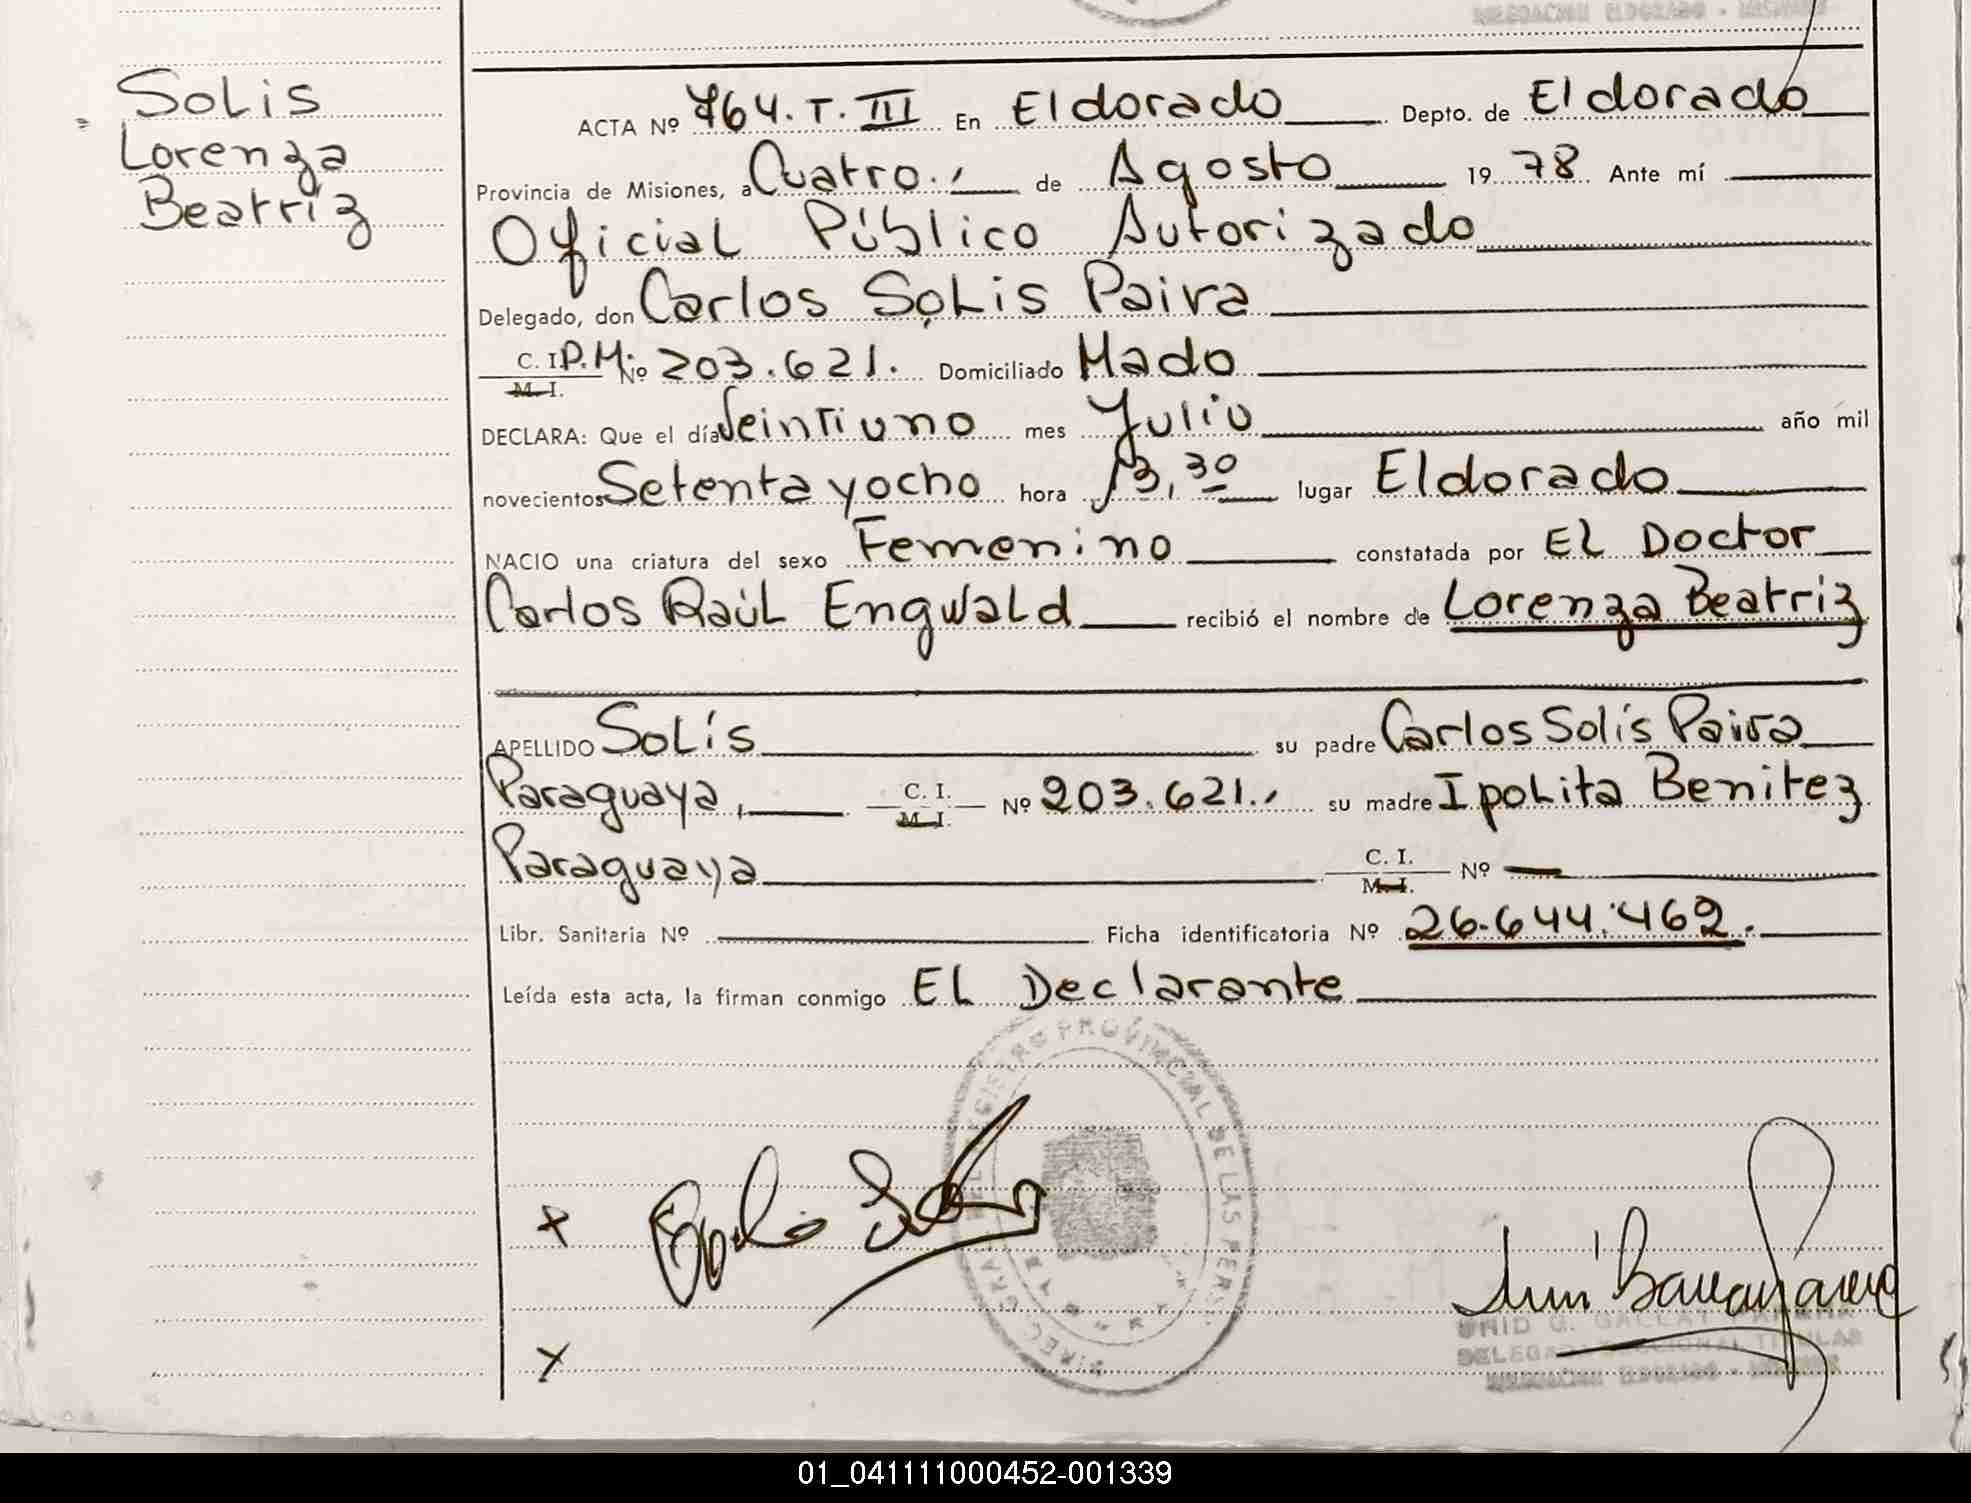 DELEGACION ELDORADO - MISIONES
Solis
Lorenza
Beatriz
ACTA Nº 764. T. III En Eldorado Depto. de Eldorado
Provincia de Misiones, a Cuatro.- de Agosto 1978 Ante mí
Oficial Público Autorizado
Delegado, don Carlos Solis Paiva
C. I. P.M. Nº 203.621. Domiciliado Mado
M. I.
DECLARA: Que el día Veintiuno mes Julio año mil
novecientos Setenta y ocho hora 13,30 lugar Eldorado
NACIO una criatura del sexo Femenino constatada por El Doctor
Carlos Raúl Engwald recibió el nombre de Lorenza Beatriz
APELLIDO Solís su padre Carlos Solís Paiva
Paraguaya, C. I. Nº 203.621.- su madre Ipolita Benitez
M. I.
Paraguaya C. I. Nº —
M. I.
Libr. Sanitaria Nº Ficha identificatoria Nº 26.644.462.
Leída esta acta, la firman conmigo El Declarante
REGISTRO PROVINCIAL DE LAS PERS.
x
x
DELEGACION ELDORADO - MISIONES
01_041111000452-001339